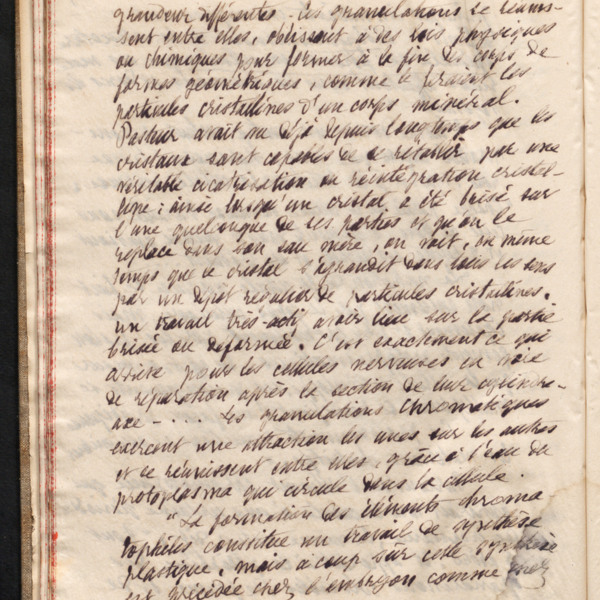 grandeur différentes. Ces granulations se réunis-
sent entre elles, obéissent à des lois physiques
ou chimiques pour former à la fin des corps de
formes géométriques, comme le feraient les
particules cristallines d'un corps minéral.
Pasteur avait vu déjà depuis longtemps que les
cristaux sont capables de se rétablir par une
véritable cicatrisation ou réintégration cristal-
line : ainsi lorsqu'un cristal a été brisé sur
l'une quelconque de ses parties et qu'on le
replace dans son eau mère, on voit, en même
temps que le cristal s'agrandit dans tous les sens
par un dépôt régulier de particules cristallines,
un travail très-actif avoir lieu sur la partie
brisée ou déformée. C'est exactement ce qui
arrive pour les cellules nerveuses en voie
de réparation après la section de leur cylindre-
axe - . . . Les granulations chromatiques
exercent une attraction les unes sur les autres
et se réunissent entre elles, grâce à l'eau du
protoplasma qui circule dans la cellule.
"La formation des éléments chroma
tophiles constitue un travail de synthèse
plastique, mais à coup sûr cette synthèse
est précédée chez l'embryon comme chez